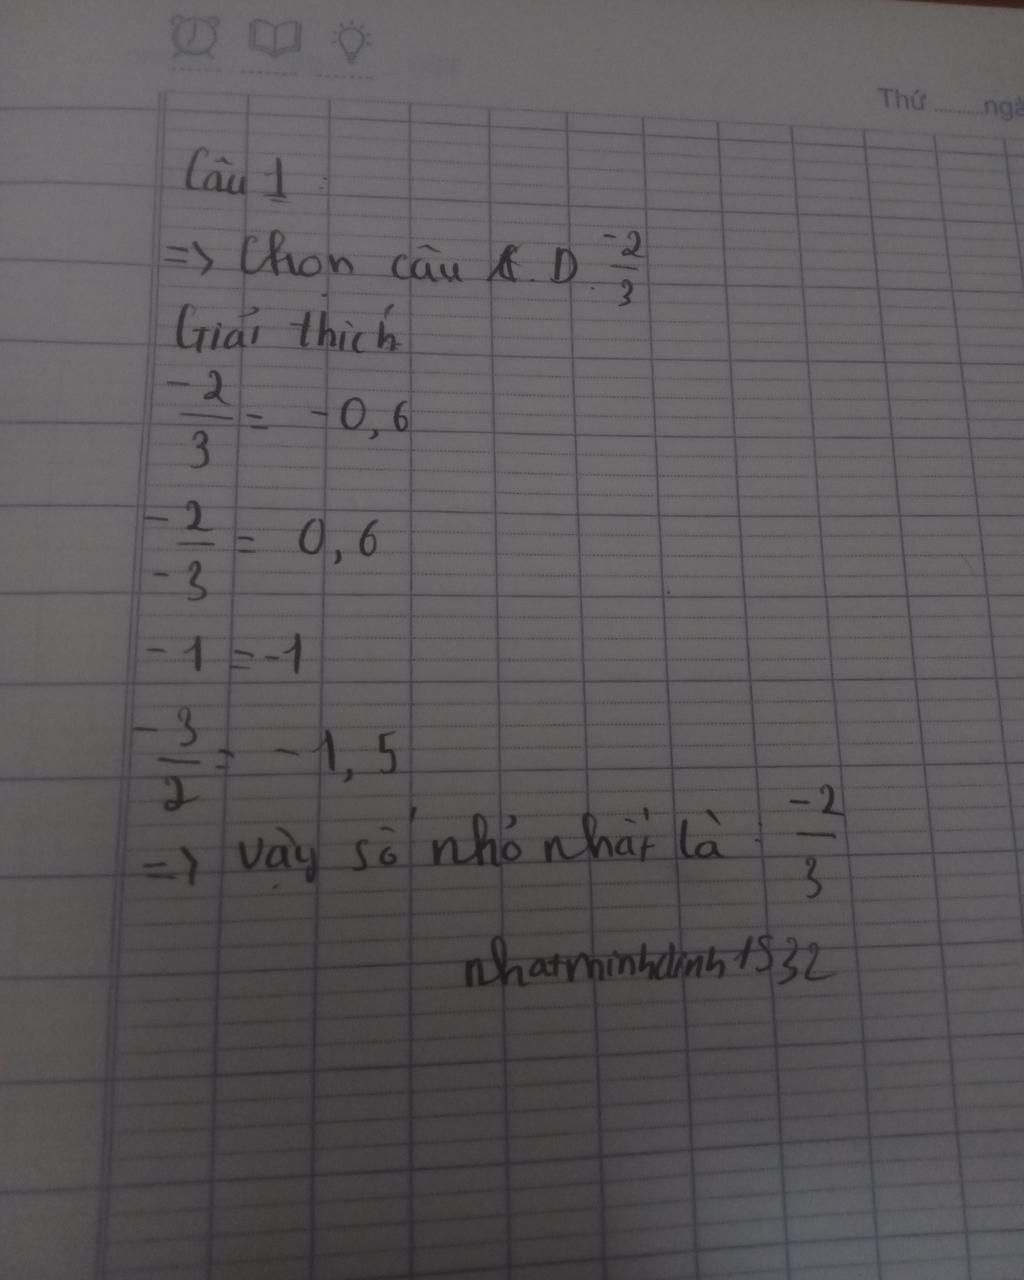 Thứ ........ngà
Câu 1 :
=> Chọn câu D. -2/3
Giải thích
-2/3 = -0,6
-2/-3 = 0,6
-1 = -1
-3/2 = -1,5
=> vậy số nhỏ nhất là : -2/3
nhatminhdinh1532